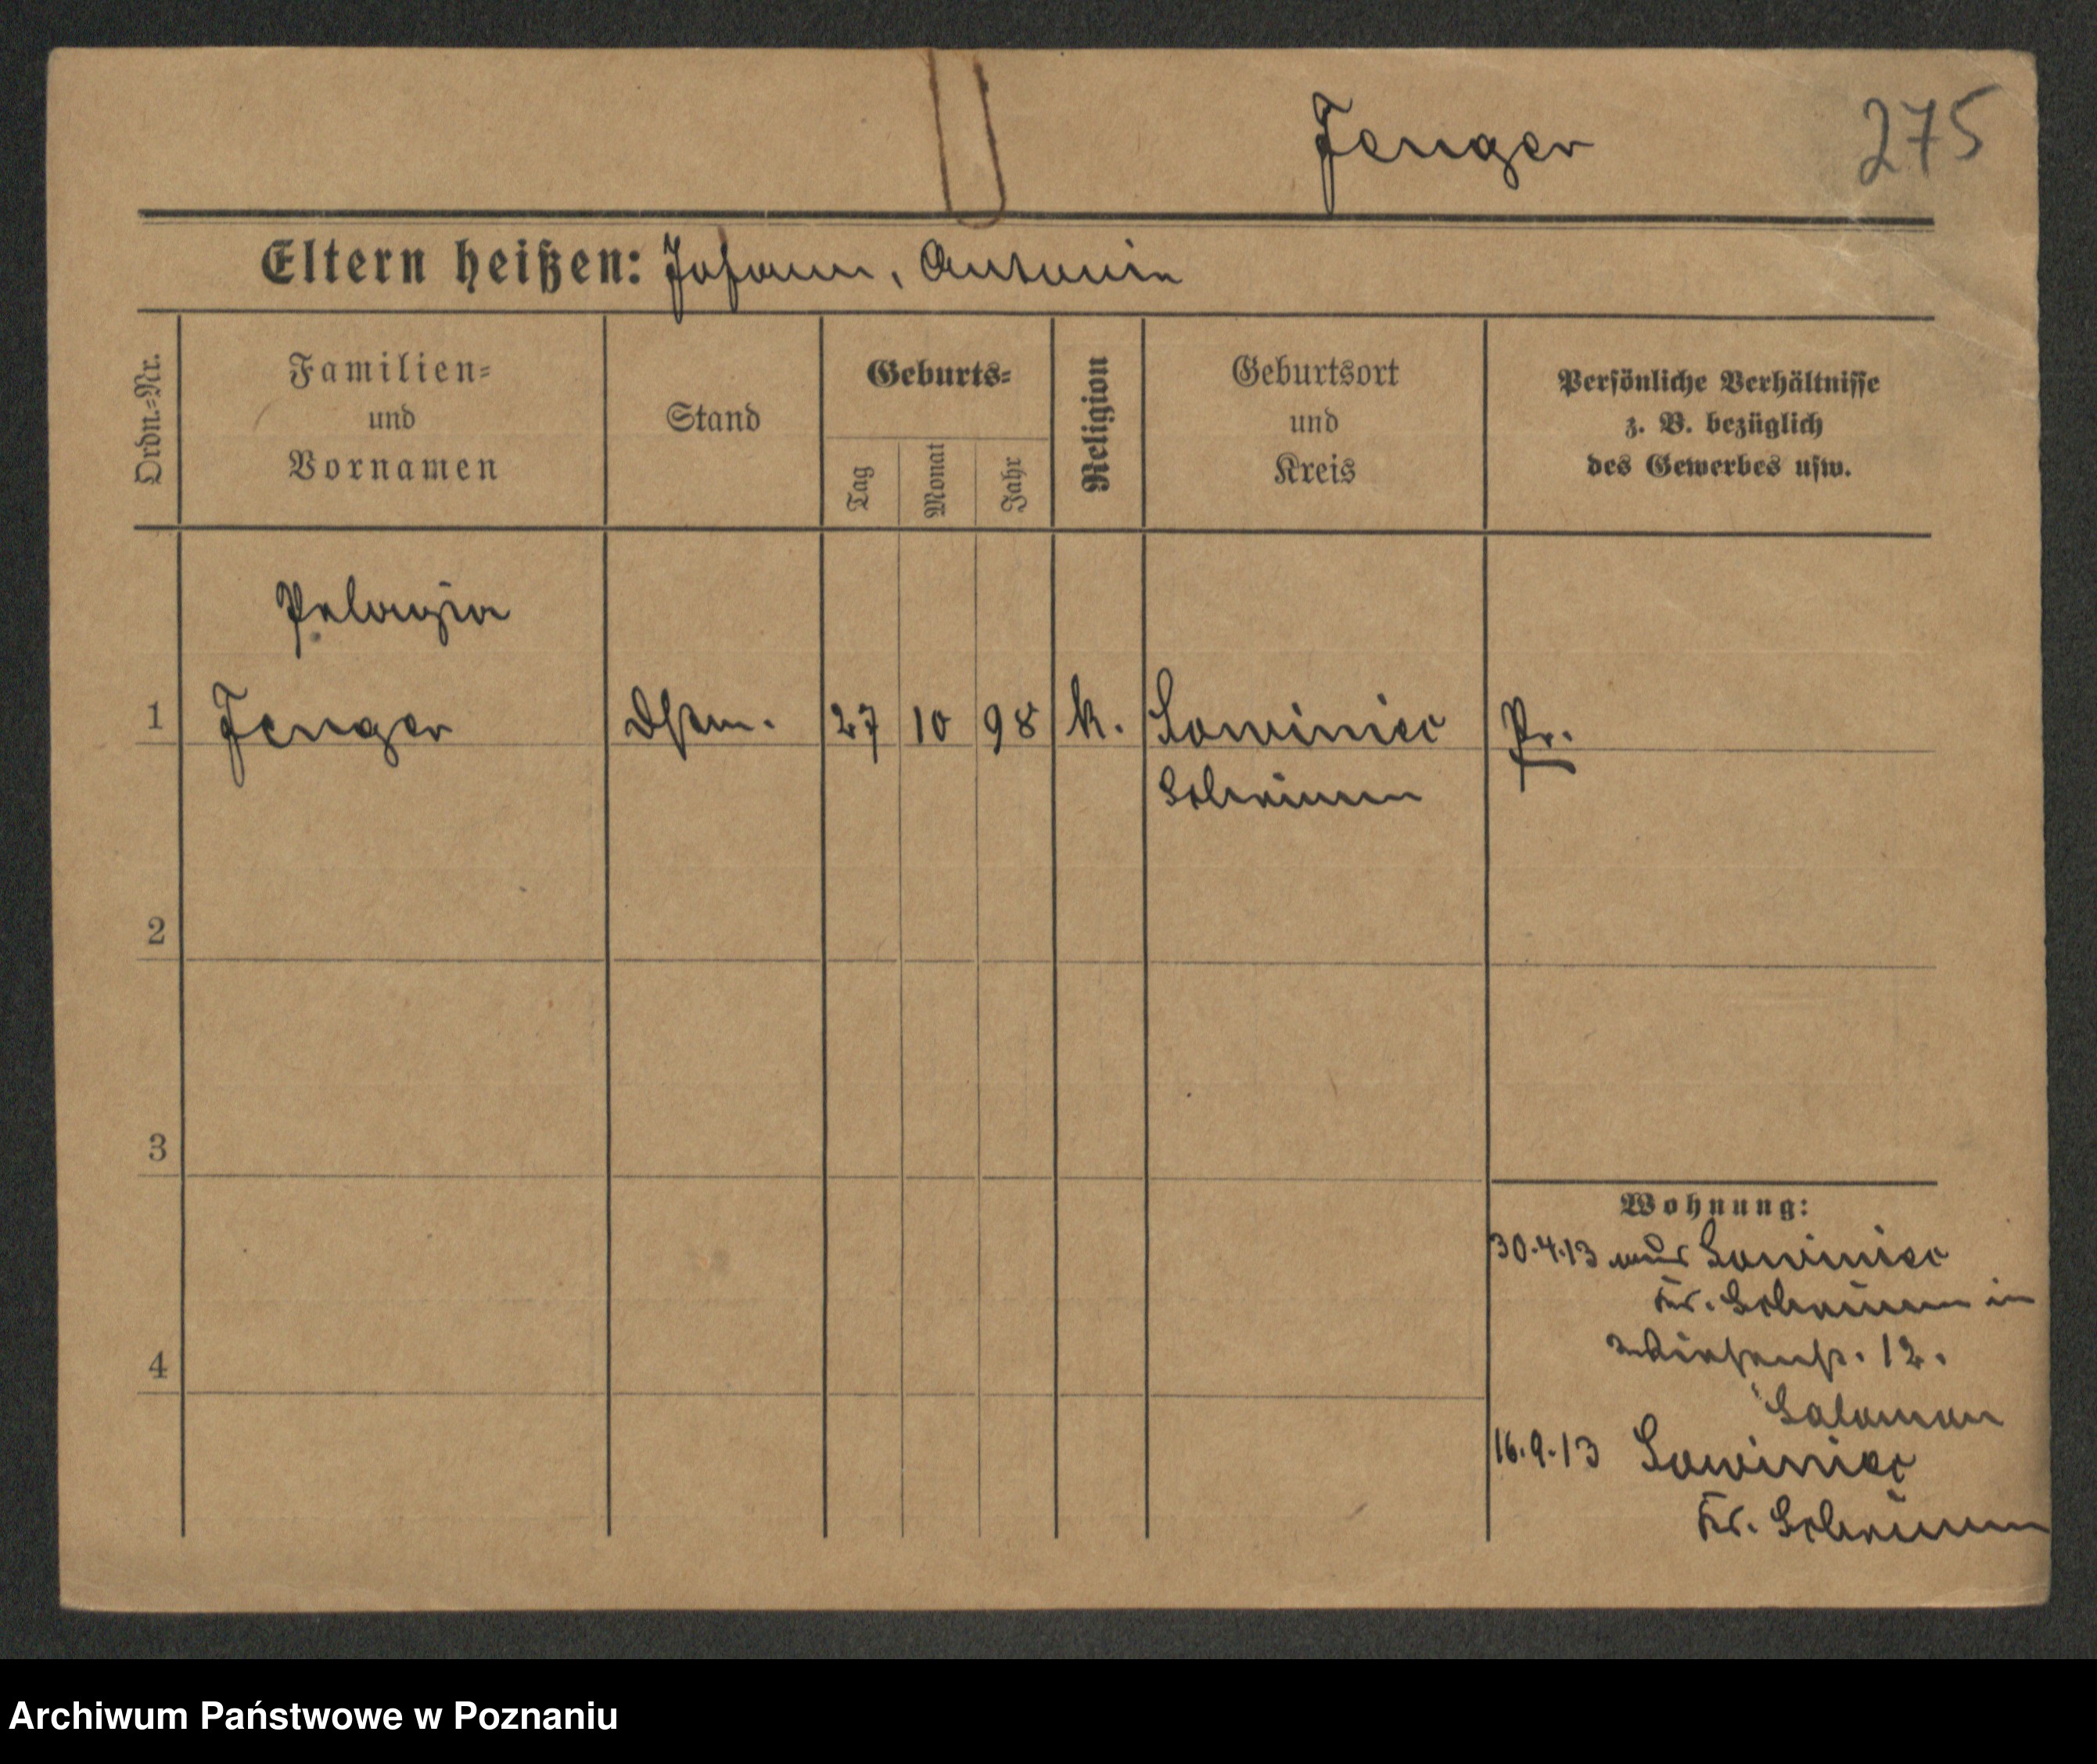 Jenger
275
Eltern heißen: Johann, Antonia
Ordn.=Nr.
Familien=
und
Vornamen
Stand
Geburts=
Tag
Monat
Jahr
Religion
Geburtsort
und
Kreis
Persönliche Verhältnisse
z. B. bezüglich
des Gewerbes usw.
Pelagia
1 Jenger Dstm. 27 10 98 k. Lowiniec Pr.
Schrimm
2
3
4
Wohnung:
30.4.13 aus Lowiniec
Kr. Schrimm in
12.
Salomon
16.9.13 Lowiniec
Kr. Schrimm
Archiwum Państwowe w Poznaniu